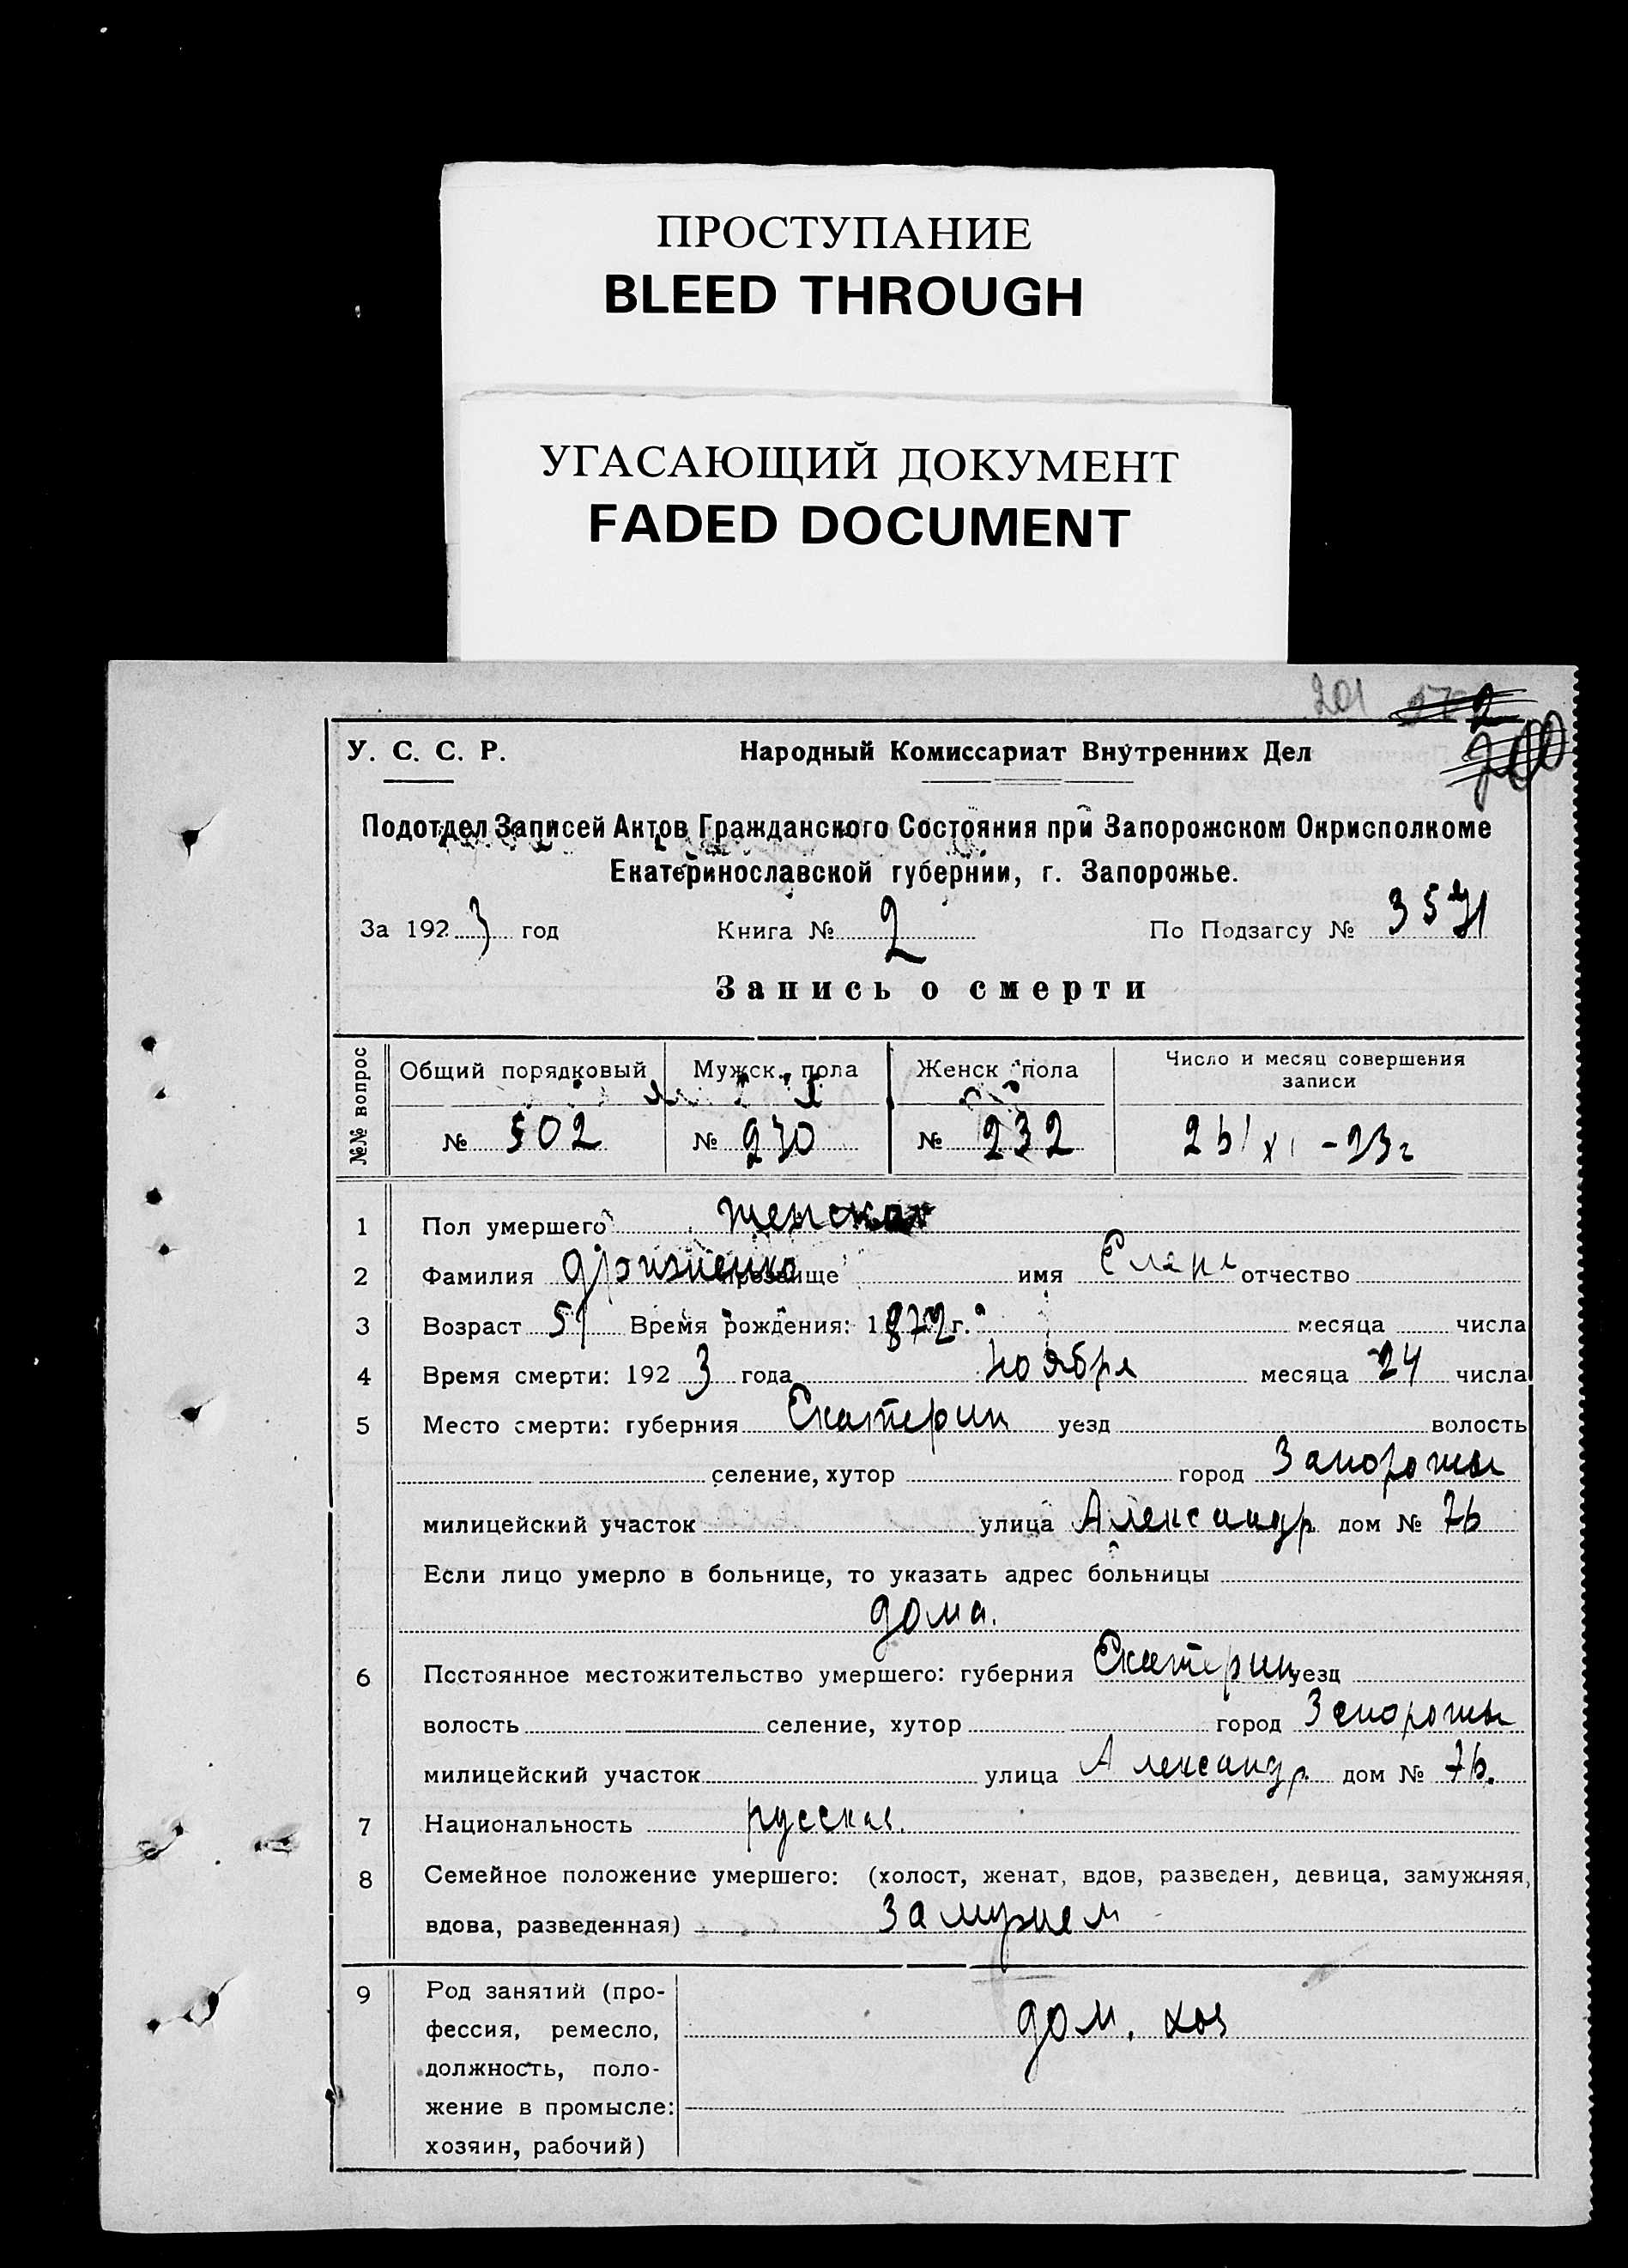 ПРОСТУПАНИЕ
BLEED THROUGH
УГАСАЮЩИЙ ДОКУМЕНТ
FADED DOCUMENT
201
2
200
У. С. С. Р. Народный Комиссариат Внутренних Дел
Подотдел Записей Актов Гражданского Состояния при Запорожском Окрисполкоме
Екатеринославской губернии, г. Запорожье.
За 1923 год Книга № 2 По Подзагсу № 3571
Запись о смерти
№№ вопрос
Общий порядковый Мужск. пола Женск пола Число и месяц совершения
записи
№ 502 № 270 № 232 26/XI -23г
1 Пол умершего женская
2 Фамилия прозвище имя Елена отчество
3 Возраст 51 Время рождения: 1872 г. месяца числа
4 Время смерти: 1923 года ноября месяца 24 числа
5 Место смерти: губерния Екатерин уезд волость
селение, хутор город Запорожье
милицейский участок улица Александр дом № 76
Если лицо умерло в больнице, то указать адрес больницы
дома.
6 Постоянное местожительство умершего: губерния Екатерин уезд
волость селение, хутор город Запорожье
милицейский участок улица Александр дом № 76.
7 Национальность русская.
8 Семейное положение умершего: (холост, женат, вдов, разведен, девица, замужняя,
вдова, разведенная) замужем
9 Род занятий (про-
фессия, ремесло, дом. хоз
должность, поло-
жение в промысле:
хозяин, рабочий)